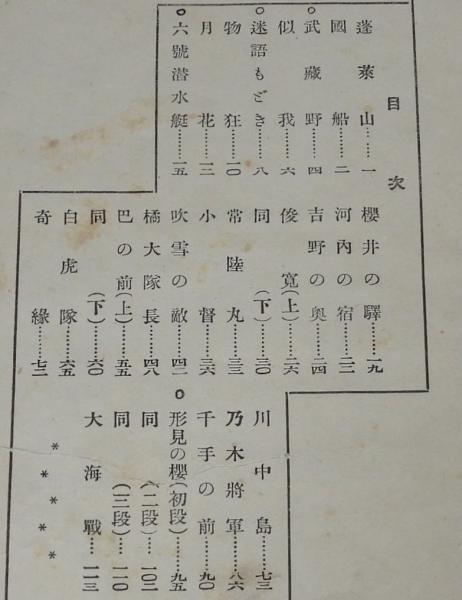 目次
蓬萊山……一
國船……二
○武藏野……四
似我……六
○迷語もどき……八
物狂……一〇
月花……一三
○六號潜水艇……一五
櫻井の驛……一九
河內の宿……二二
吉野の奥……二四
俊寬(上)……二六
同(下)……三〇
常陸丸……三三
小督……三六
吹雪の敵……四二
橘大隊長……四八
巴の前(上)……五五
同(下)……六〇
白虎隊……六五
奇緣……七二
川中島……七三
乃木將軍……八六
千手の前……九〇
○形見の櫻(初段)……九五
同(二段)……一〇二
同(三段)……一一〇
大海戰……一一三
＊＊＊＊＊